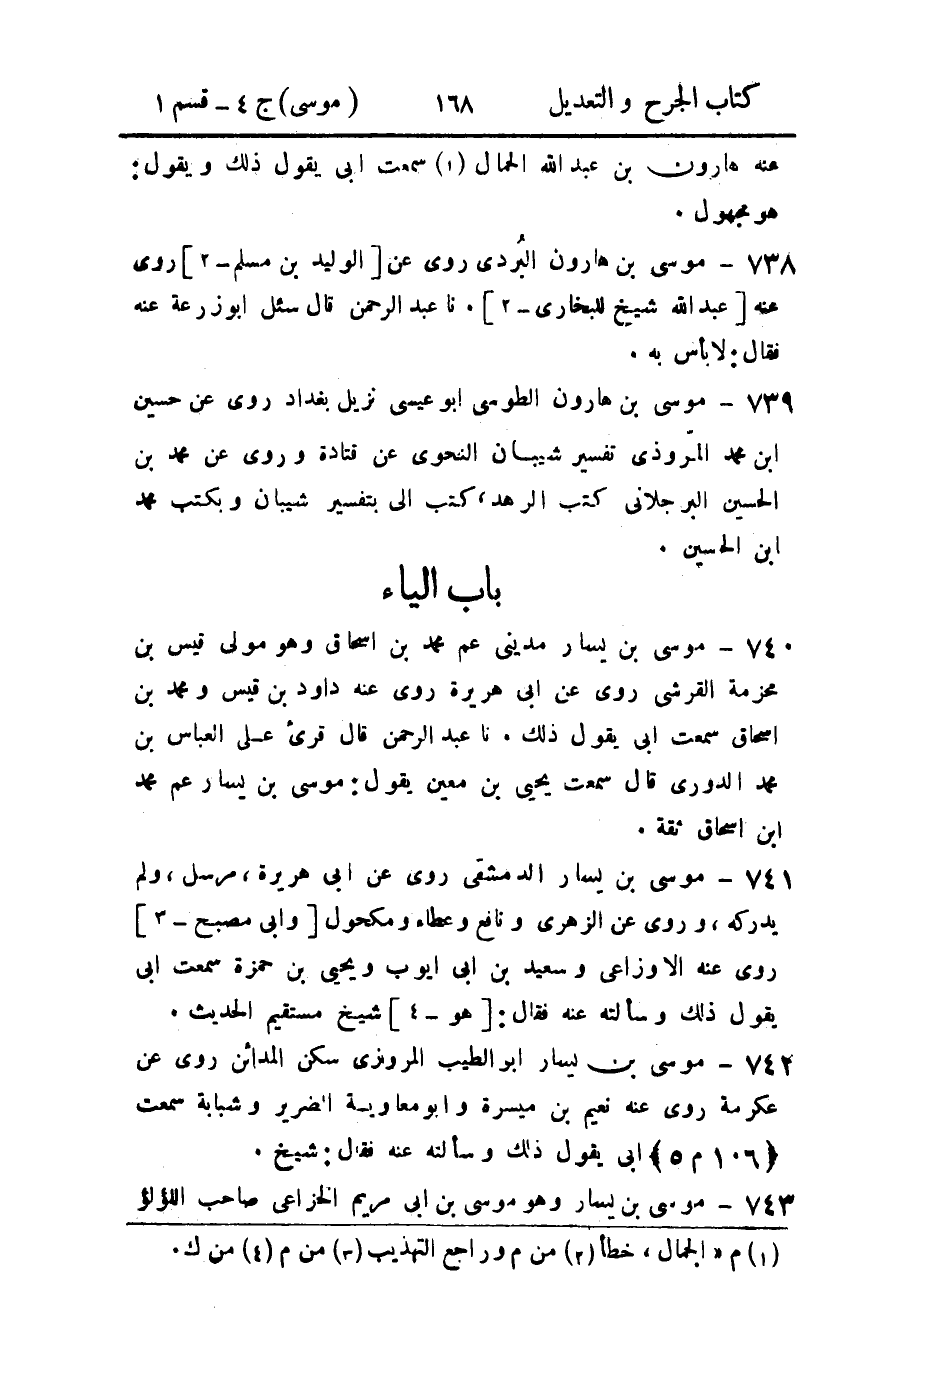 كتاب الجرح والتعديل ١٦٨ (موسى) ج ٤ - قسم ١
عنه هارون بن عبد الله الحمال (١) سمعت ابى يقول ذلك ويقول:
هو مجهول.
٧٣٨ - موسى بن هارون البُردى روى عن [الوليد بن مسلم - ٢] روى
عنه [عبد الله شيخ للبخارى - ٢]. نا عبد الرحمن قال سئل ابو زرعة عنه
فقال: لا بأس به.
٧٣٩ - موسى بن هارون الطوسى ابو عيسى نزيل بغداد روى عن حسين
ابن محمد المرّوذى تفسير شيبان النحوى عن قتادة وروى عن محمد بن
الحسين البرجلانى كتب الزهد، كتب الى بتفسير شيبان وبكتب محمد
ابن الحسين.
باب الياء
٧٤٠ - موسى بن يسار مدينى عم محمد بن اسحاق وهو مولى قيس بن
مخرمة القرشى روى عن ابى هريرة روى عنه داود بن قيس ومحمد بن
اسحاق سمعت ابى يقول ذلك. نا عبد الرحمن قال قرئ على العباس بن
محمد الدورى قال سمعت يحيى بن معين يقول: موسى بن يسار عم محمد
ابن اسحاق ثقة.
٧٤١ - موسى بن يسار الدمشقى روى عن ابى هريرة، مرسل، ولم
يدركه، وروى عن الزهرى ونافع وعطاء ومكحول [وابى مصبح - ٣]
روى عنه الاوزاعى وسعيد بن ابى ايوب ويحيى بن حمزة سمعت ابى
يقول ذلك وسألته عنه فقال: [هو - ٤] شيخ مستقيم الحديث.
٧٤٢ - موسى بن يسار ابو الطيب المروزى سكن المدائن روى عن
عكرمة روى عنه نعيم بن ميسرة وابو معاوية الضرير وشبابة سمعت
(١٠٦ م ٥) ابى يقول ذلك وسألته عنه فقال: شيخ.
٧٤٣ - موسى بن يسار وهو موسى بن ابى مريم الخزاعى صاحب اللؤلؤ
(١) م «الجمال، خطأ (٢) من م وراجع التهذيب (٣) من م (٤) من ك.